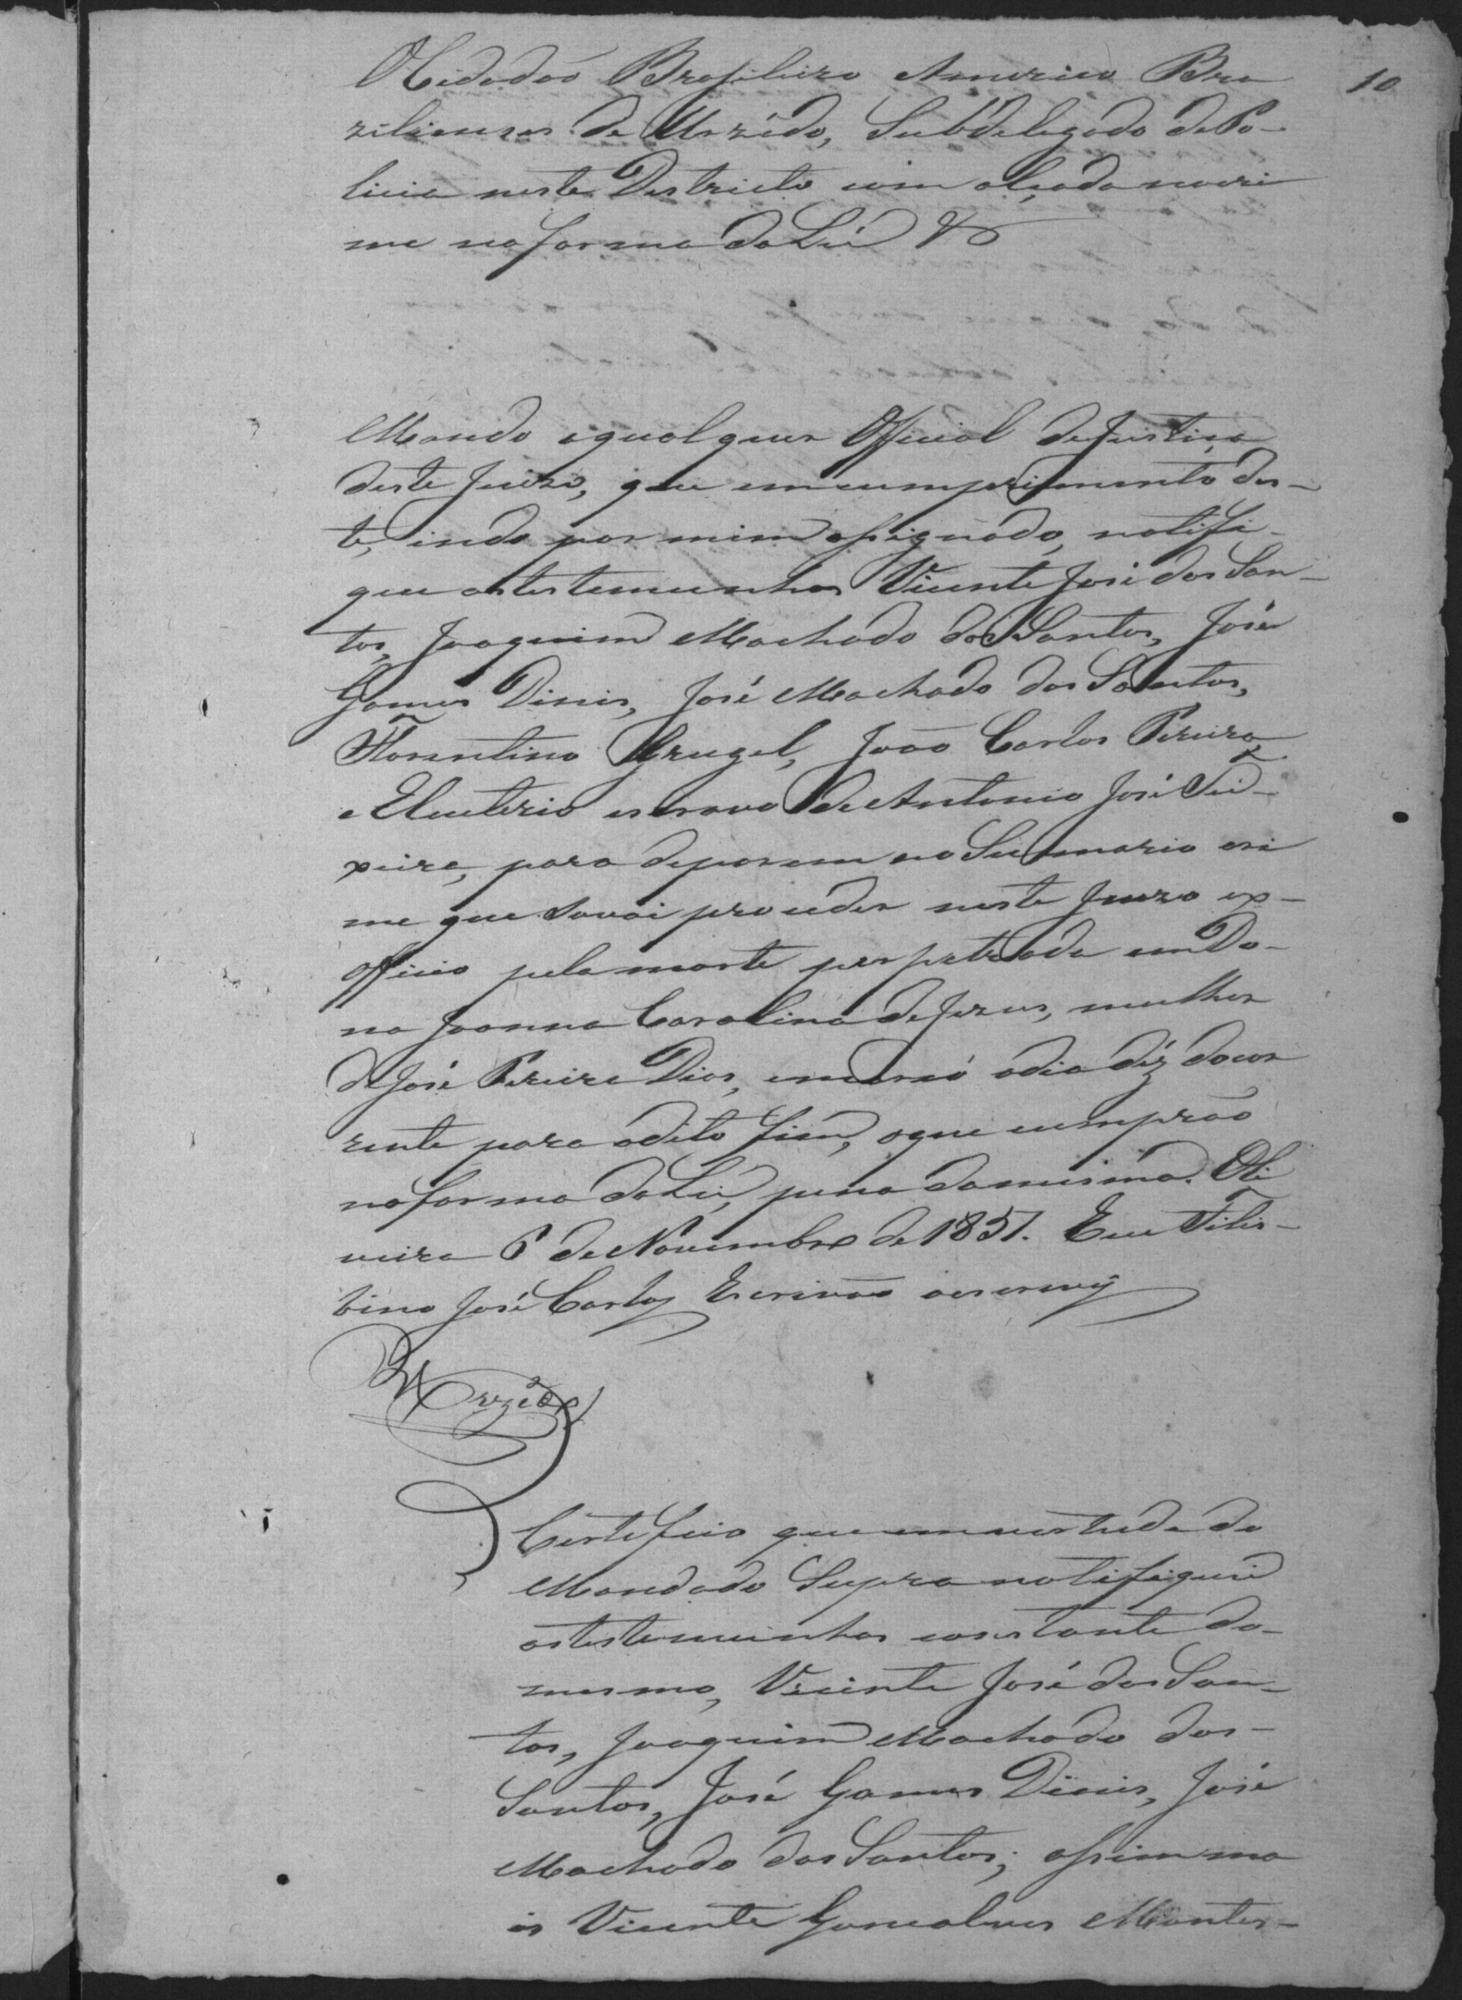 10
O Cidadão Brasileiro Americo Bra
ziliense de Urzédo, Subdelegado de Po-
licia neste Destricto com alçada nocri
me na forma da Lei &
Mando aqualquer Official deJustiça
deste Juizo, que em cumprimento des-
te, indo por mim assignado, notifi-
que as testemunhas Vicente José dos San-
tos, Joaquim Machado dos Santos, José
Gomes Dinis, José Machado dos Santos,
Florentino Grugel, João Carlos Pereira
e Eleuterio escravo de Antonio José Tei-
xeira, para deporem no Summario cri
me que sevai proceder neste Juizo ex-
officio pela morte perpetrada em Do-
na Joanna Carolina de Jezus, mulher
de José Pereira Dias, emarcó odia déz docor
rente para odito fim, oque cumprão
na forma da Lei, pena damesma. Oli
veira 6 de Novembro de 1857. Eu Felis-
bino José Carlos Escrivão oescrevy
Urzédo
Certifico que em vertude do
Mandado Supra notifiquei
astestemunhas constante do-
mesmo, Vicente José dos San-
tos, Joaquim Machado dos-
Santos, José Gomes Dinis, José
Machado dos Santos; assim ma
is Vicente Gonçalves Montes-